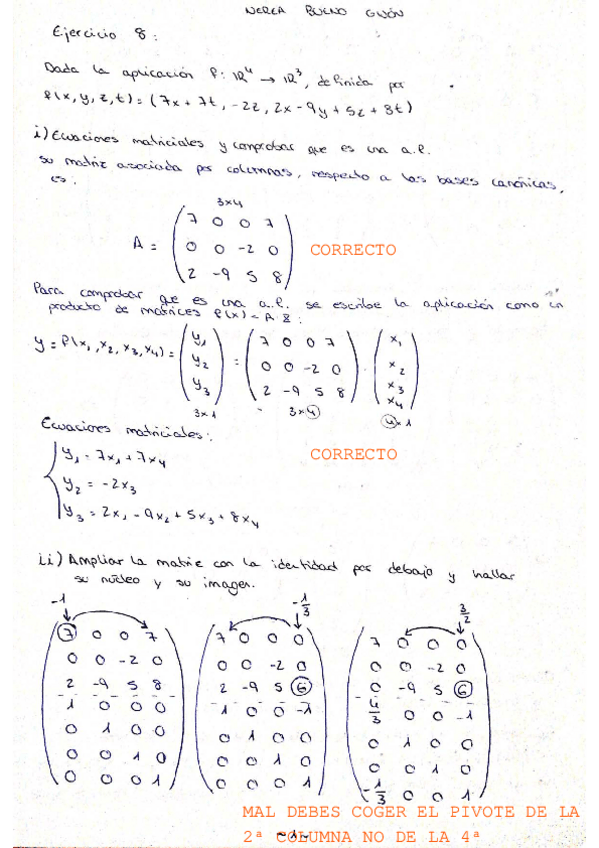 NEREA BUENO GIJÓN
Ejercicio 8:
Dada la aplicación f: ℝ⁴ → ℝ³, definida por
f(x,y,z,t) = (7x + 7t, -2z, 2x - 9y + 5z + 8t)
i) Ecuaciones matriciales y comprobar que es una a.l.
su matriz asociada por columnas, respecto a las bases canónicas,
es:
3x4
7 0 0 7
A = 0 0 -2 0 CORRECTO
2 -9 5 8
Para comprobar que es una a.l. se escribe la aplicación como un
producto de matrices f(x) = A·x:
y = f(x₁, x₂, x₃, x₄) = (y₁ y₂ y₃) = (7 0 0 7
0 0 -2 0
2 -9 5 8) · (x₁ x₂ x₃ x₄)
3x1 3x4 4x1
Ecuaciones matriciales: CORRECTO
y₁ = 7x₁ + 7x₄
y₂ = -2x₃
y₃ = 2x₁ - 9x₂ + 5x₃ + 8x₄
ii) Ampliar la matriz con la identidad por debajo y hallar
su núcleo y su imagen.
-1 -1/3 3/2
7 0 0 7 7 0 0 0 7 0 0 0
0 0 -2 0 0 0 -2 0 0 0 -2 0
2 -9 5 8 2 -9 5 6 0 -9 5 6
1 0 0 0 1 0 0 -1 4/3 0 0 -1
0 1 0 0 0 1 0 0 0 1 0 0
0 0 1 0 0 0 1 0 0 0 1 0
0 0 0 1 0 0 0 1 -1/3 0 0 1
MAL DEBES COGER EL PIVOTE DE LA
2ª COLUMNA NO DE LA 4ª
-1-